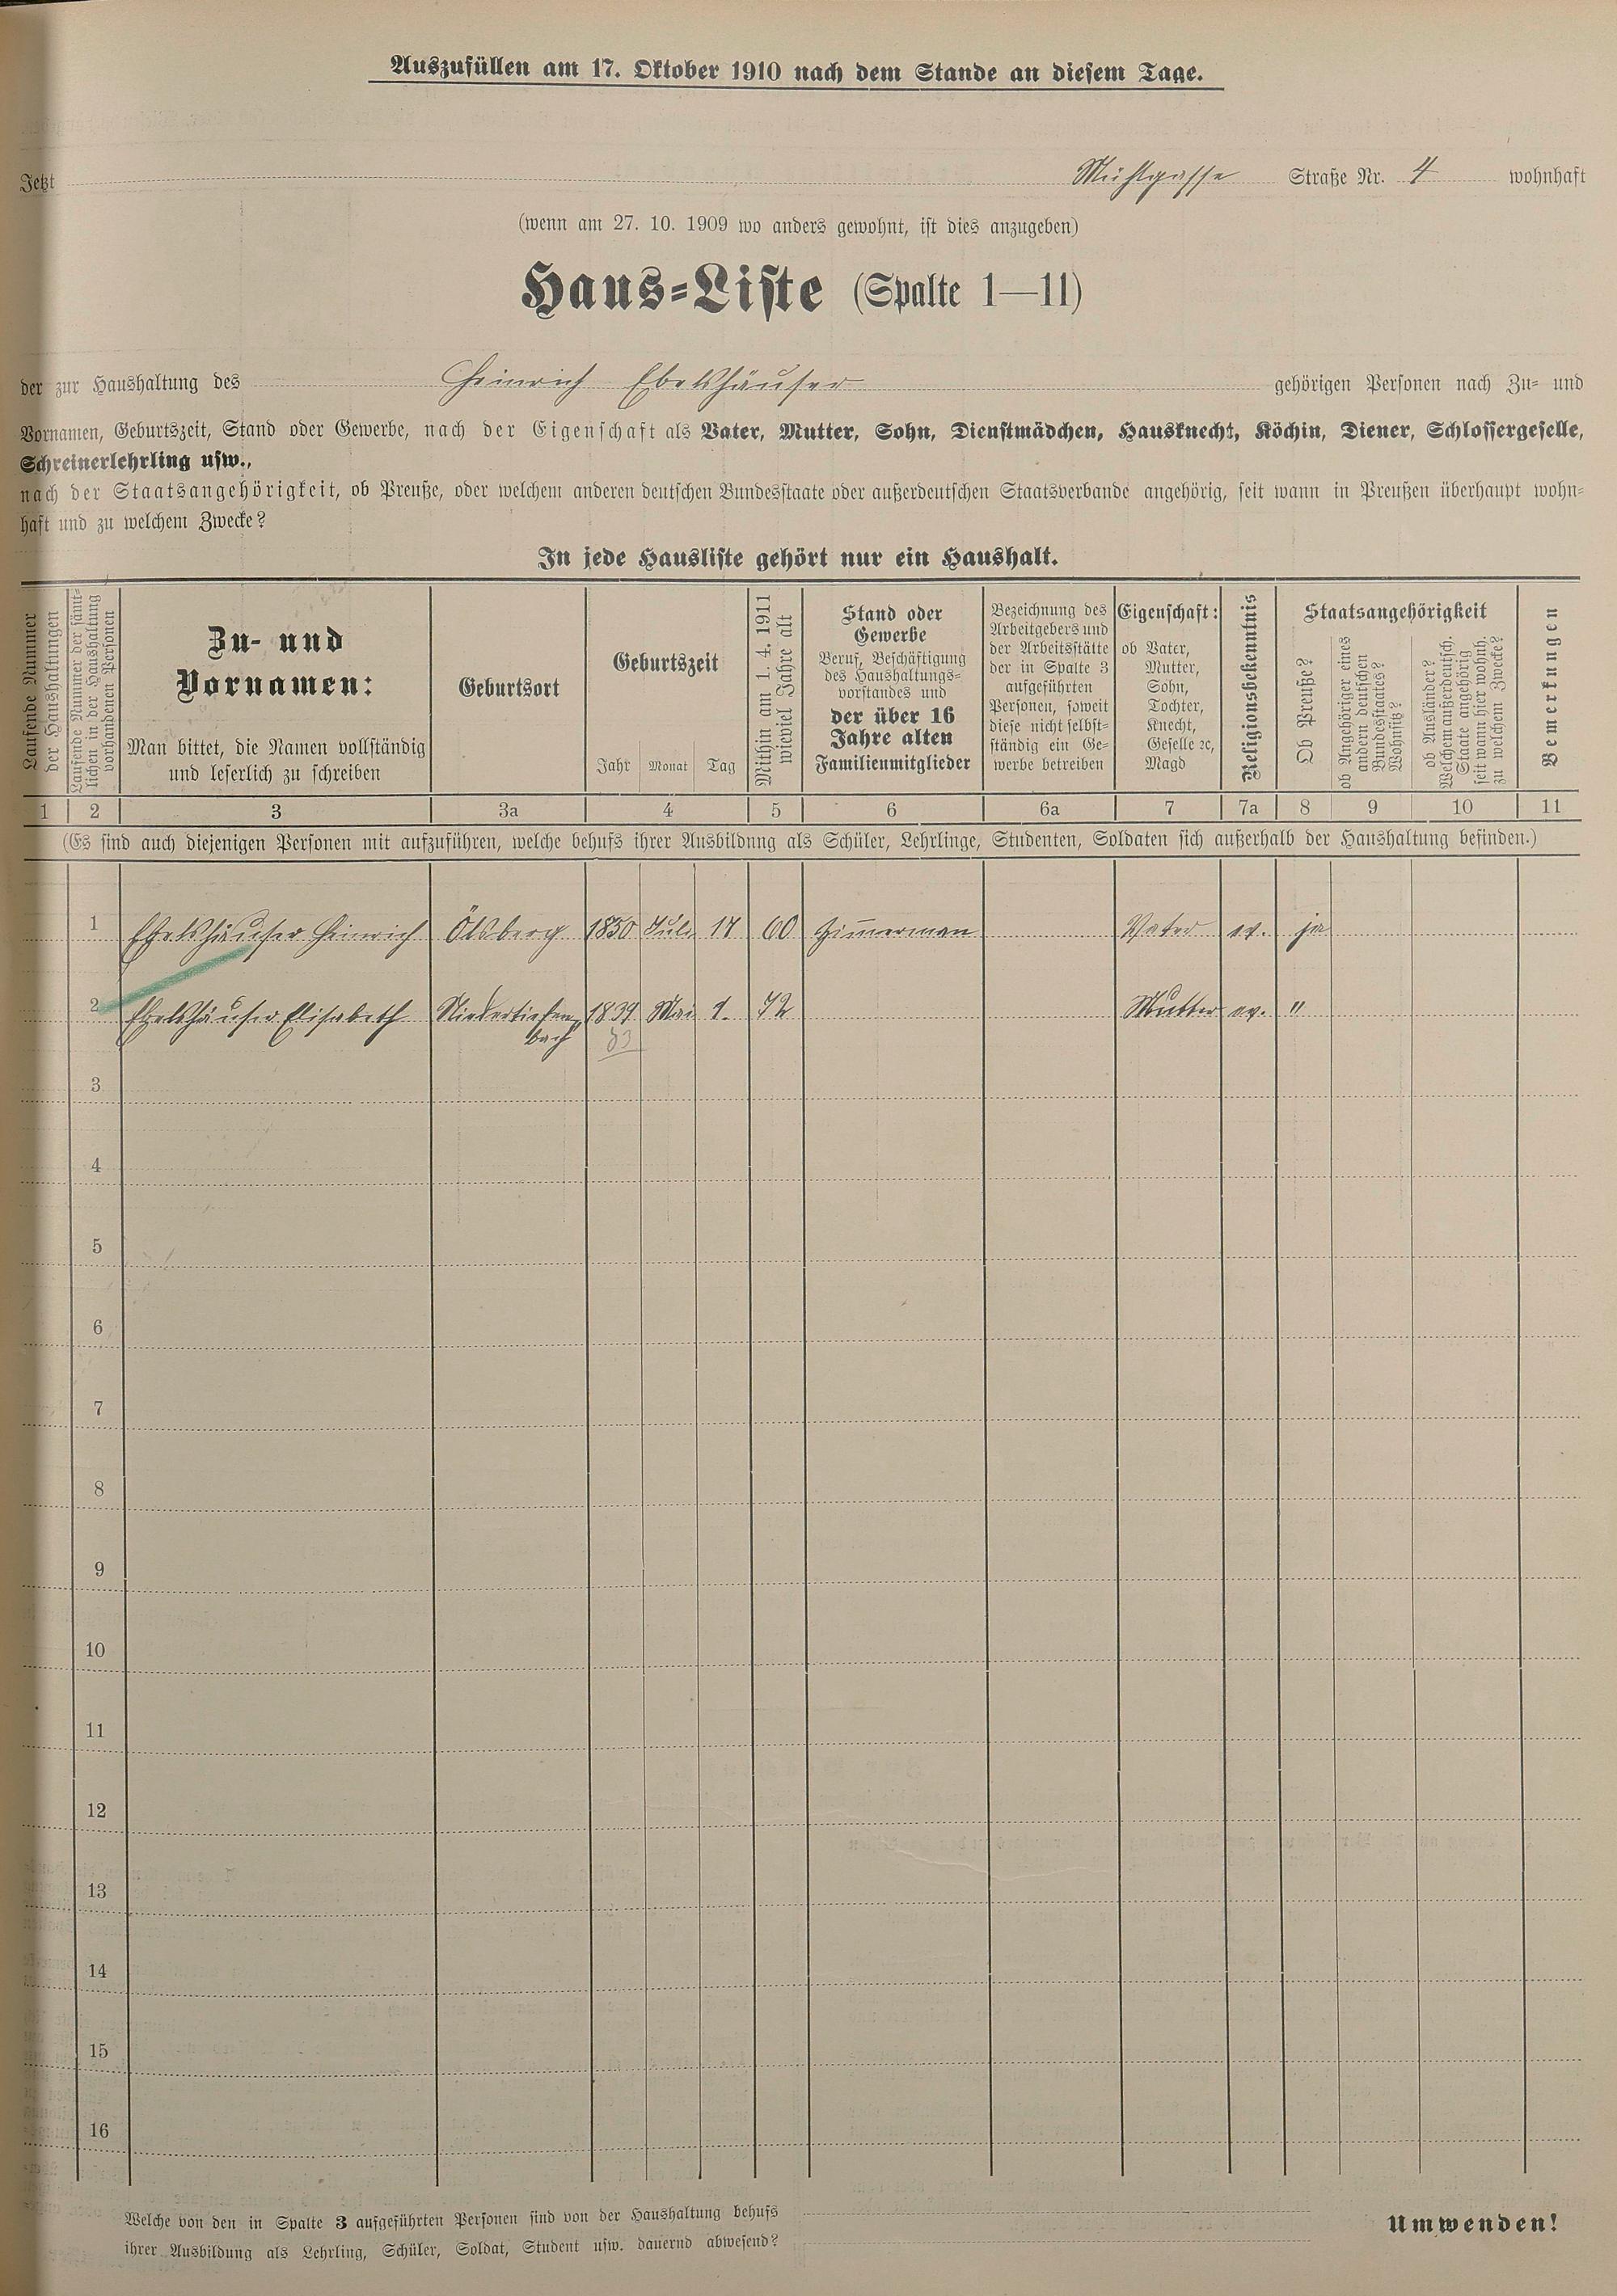 Auszufüllen am 17. Oktober 1910 nach dem Stande an diesem Tage.
Jetzt Mühlgasse Straße Nr. 4 wohnhaft
(wenn am 27. 10. 1909 wo anders gewohnt, ist dies anzugeben)
Haus-Liste (Spalte 1—11)
der zur Haushaltung des Heinrich Ebelshäuser gehörigen Personen nach Zu- und
Vornamen, Geburtszeit, Stand oder Gewerbe, nach der Eigenschaft als Vater, Mutter, Sohn, Dienstmädchen, Hausknecht, Köchin, Diener, Schlossergeselle,
Schreinerlehrling usw.,
nach der Staatsangehörigkeit, ob Preuße, oder welchem anderen deutschen Bundesstaate oder außerdeutschen Staatsverbande angehörig, seit wann in Preußen überhaupt wohn-
haft und zu welchem Zwecke?
In jede Hausliste gehört nur ein Haushalt.
Laufende Nummer
der Haushaltungen
Laufende Nummer der sämt-
lichen in der Haushaltung
vorhandenen Personen
Zu- und
Vornamen:
Man bittet, die Namen vollständig
und leserlich zu schreiben
Geburtsort
Geburtszeit
Jahr Monat Tag
Mithin am 1. 4. 1911
wieviel Jahre alt
Stand oder
Gewerbe
Beruf, Beschäftigung
des Haushaltungs-
vorstandes und
der über 16
Jahre alten
Familienmitglieder
Bezeichnung des
Arbeitgebers und
der Arbeitsstätte
der in Spalte 3
aufgeführten
Personen, soweit
diese nicht selbst-
ständig ein Ge-
werbe betreiben
Eigenschaft:
ob Vater,
Mutter,
Sohn,
Tochter,
Knecht,
Geselle ꝛc,
Magd
Religionsbekenntnis
Staatsangehörigkeit
Ob Preuße?
ob Angehöriger eines
andern deutschen
Bundesstaates?
Wohnsitz?
ob Ausländer?
Welchem außerdeutsch.
Staate angehörig
seit wann hier wohnh.
zu welchem Zwecke?
Bemerkungen
1 2 3 3a 4 5 6 6a 7 7a 8 9 10 11
(Es sind auch diejenigen Personen mit aufzuführen, welche behufs ihrer Ausbildung als Schüler, Lehrlinge, Studenten, Soldaten sich außerhalb der Haushaltung befinden.)
1 Ebelshäuser Heinrich Ölsberg 1850 Juli 17 60 Zimmerman Vater ev. ja
2 Ebelshäuser Elisabeth Niedertiefen- 1839 Mai 1. 72 Mutter ev. "
bach
3
4
5
6
7
8
9
10
11
12
13
14
15
16
Welche von den in Spalte 3 aufgeführten Personen sind von der Haushaltung behufs
ihrer Ausbildung als Lehrling, Schüler, Soldat, Student usw. dauernd abwesend?
Umwenden!